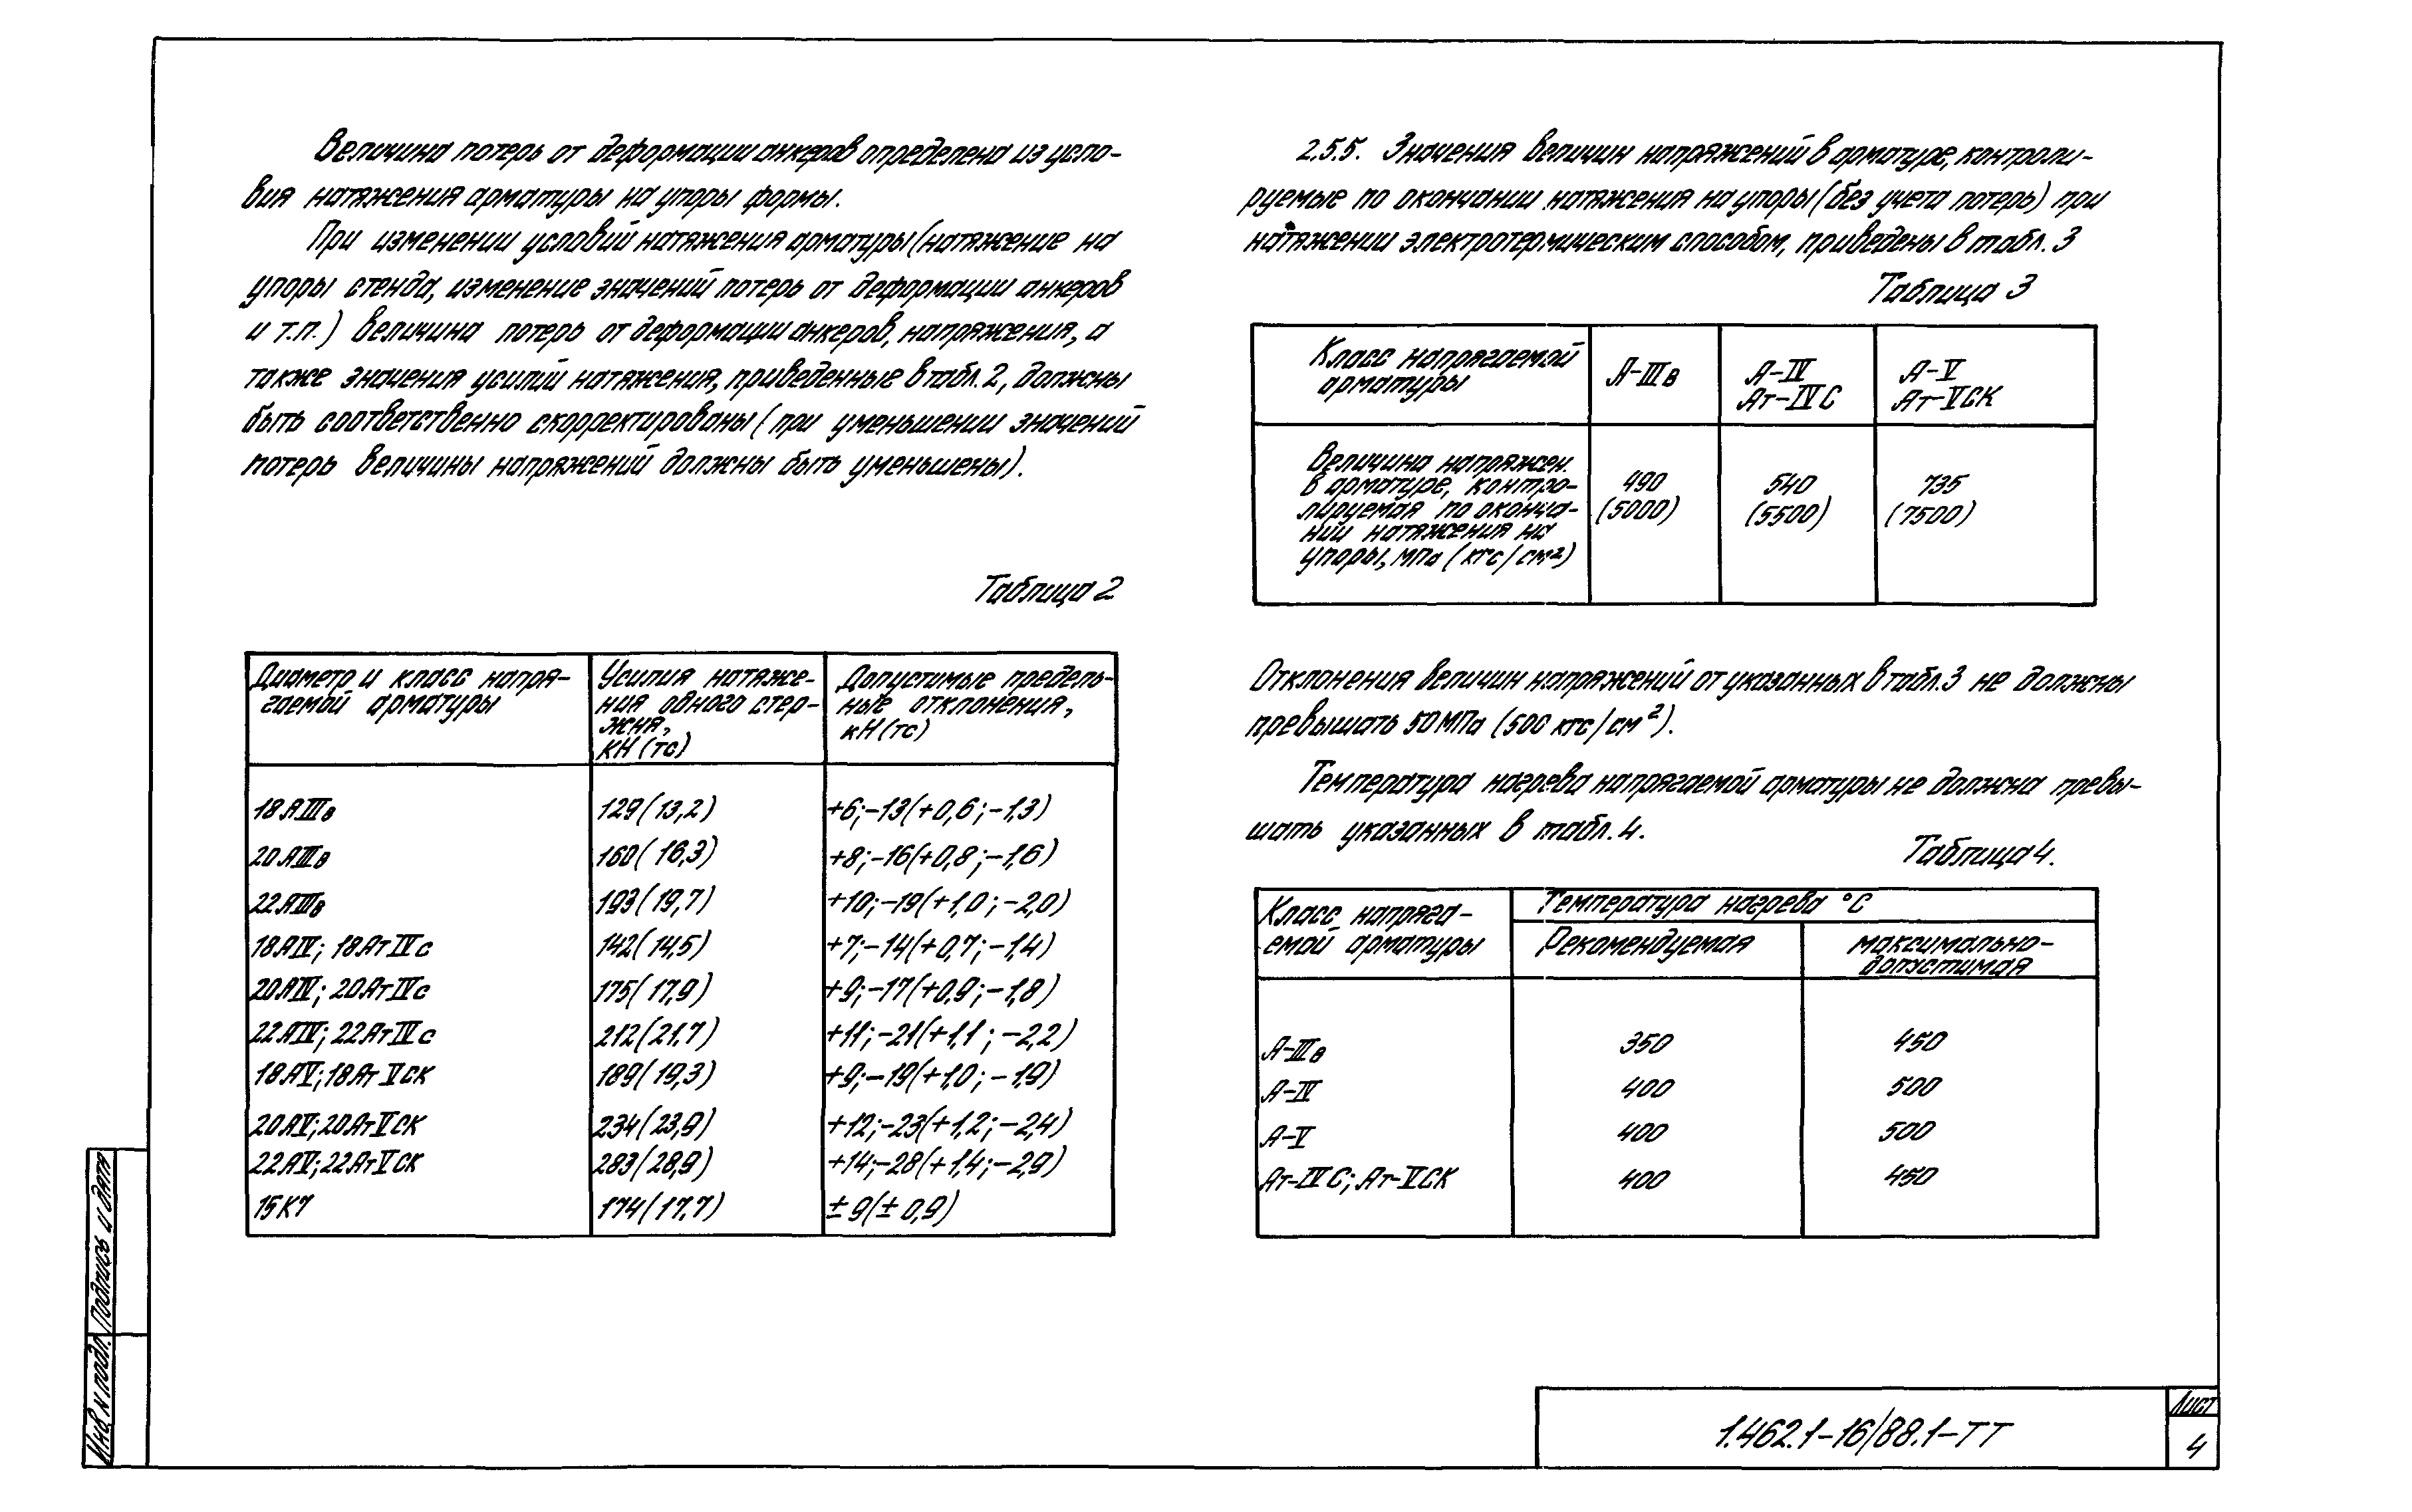 Величина потерь от деформации анкеров определена из усло-
вия натяжения арматуры на упоры формы.
При изменении условий натяжения арматуры (натяжение на
упоры стенда, изменение значений потерь от деформации анкеров
и т.п.) величина потерь от деформации анкеров, напряжения, а
также значения усилий натяжения, приведенные в табл. 2, должны
быть соответственно скорректированы (при уменьшении значений
потерь величины напряжений должны быть уменьшены).
Таблица 2
Диаметр и класс напря-
гаемой арматуры
Усилия натяже-
ния одного стер-
жня,
кН (тс)
Допустимые предель-
ные отклонения,
кН (тс)
18 АIIIв 129 (13,2) +6; -13 (+0,6; -1,3)
20 АIIIв 160 (16,3) +8; -16 (+0,8; -1,6)
22 АIIIв 193 (19,7) +10; -19 (+1,0; -2,0)
18 АIV; 18 АтIVс 142 (14,5) +7; -14 (+0,7; -1,4)
20 АIV; 20 АтIVс 175 (17,9) +9; -17 (+0,9; -1,8)
22 АIV; 22 АтIVс 212 (21,7) +11; -21 (+1,1; -2,2)
18 АV; 18 АтVСК 189 (19,3) +9; -19 (+1,0; -1,9)
20 АV; 20 АтVСК 234 (23,9) +12; -23 (+1,2; -2,4)
22 АV; 22 АтVСК 283 (28,9) +14; -28 (+1,4; -2,9)
15 К7 174 (17,7) ± 9 (± 0,9)
2.5.5. Значения величин напряжений в арматуре, контроли-
руемые по окончании натяжения на упоры (без учета потерь) при
натяжении электротермическим способом, приведены в табл. 3
Таблица 3
Класс напрягаемой
арматуры
А-IIIв
А-IV
Ат-IVС
А-V
Ат-VСК
Величина напряжен.
в арматуре, контро-
лируемая по оконча-
нии натяжения на
упоры, МПа (кгс/см²)
490
(5000)
540
(5500)
735
(7500)
Отклонения величин напряжений от указанных в табл. 3 не должны
превышать 50 МПа (500 кгс/см²).
Температура нагрева напрягаемой арматуры не должна превы-
шать указанных в табл. 4.
Таблица 4.
Класс напряга-
емой арматуры
Температура нагрева °С
Рекомендуемая
максимально-
допустимая
А-IIIв 350 450
А-IV 400 500
А-V 400 500
Ат-IVС; Ат-VСК 400 450
Инв N подл. Подпись и дата
1.462.1-16/88.1-ТТ
Лист
4